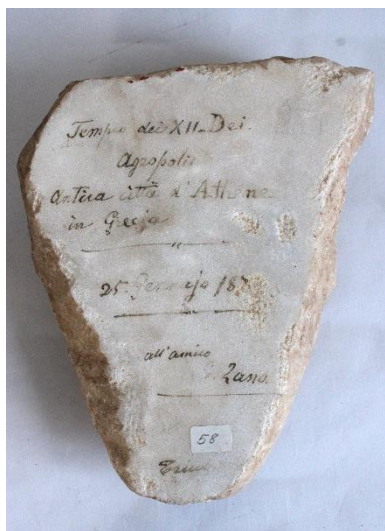 Tempio dei XII Dei.
Agropolis
Antica città d'Athene
in Grecia
25 187
all'amico
Zano.
58